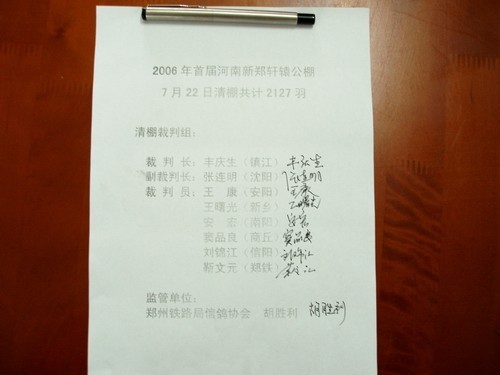 2006年首届河南新郑轩辕公棚
7月22日清棚共计2127羽
清棚裁判组：
裁 判 长：丰庆生（镇江） 丰庆生
副裁判长：张连明（沈阳） 张连明
裁 判 员：王 康（安阳） 王康
王曙光（新乡） 王曙光
安 宏（南阳） 安宏
窦品良（商丘） 窦品良
刘锦江（信阳） 刘锦江
靳文元（郑铁）
监管单位：
郑州铁路局信鸽协会 胡胜利 胡胜利